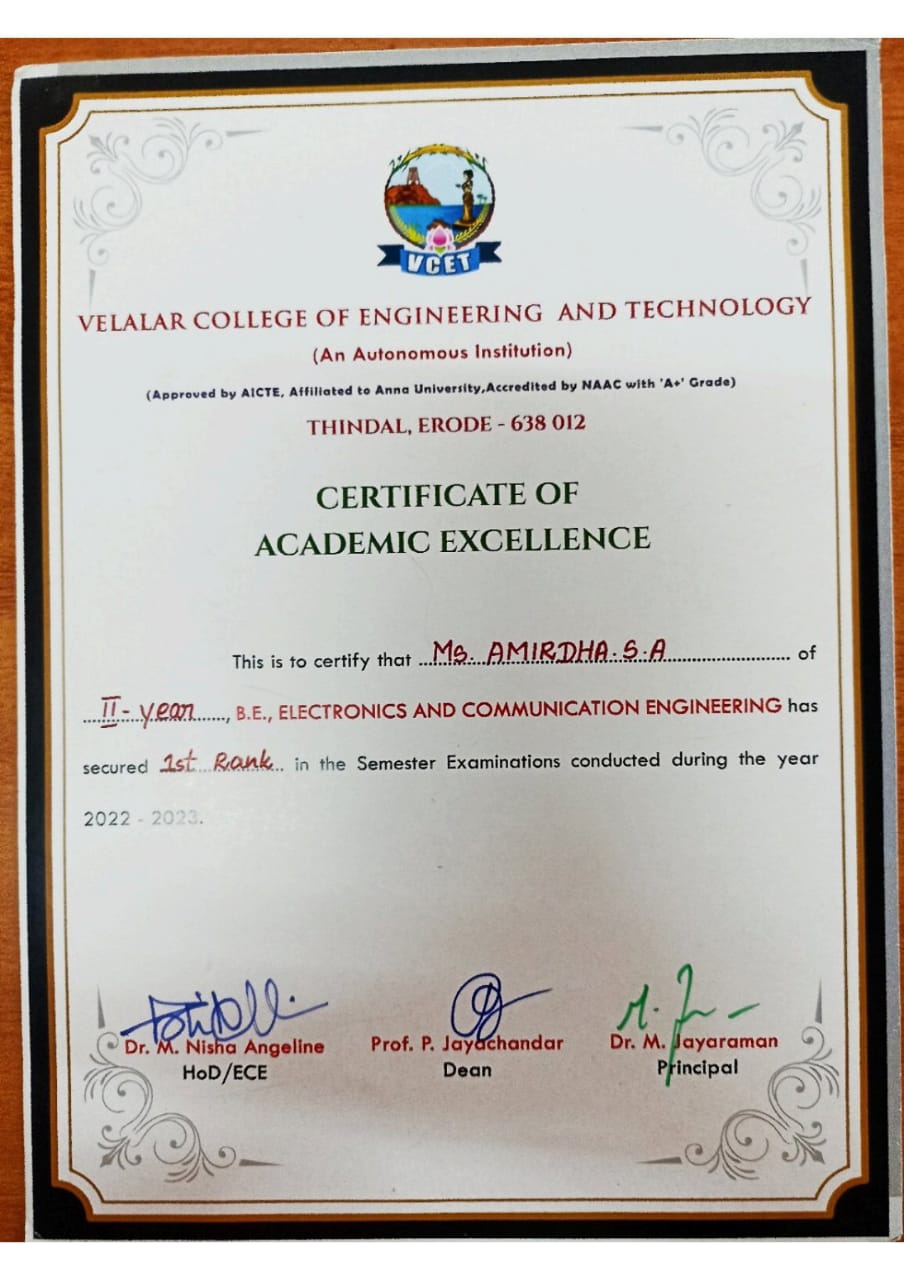 VCET
VELALAR COLLEGE OF ENGINEERING AND TECHNOLOGY
(An Autonomous Institution)
(Approved by AICTE, Affiliated to Anna University,Accredited by NAAC with 'A+' Grade)
THINDAL, ERODE - 638 012
CERTIFICATE OF
ACADEMIC EXCELLENCE
This is to certify that Ms. AMIRDHA.S.A of
II - year, B.E., ELECTRONICS AND COMMUNICATION ENGINEERING has
secured 1st Rank in the Semester Examinations conducted during the year
2022 - 2023.
Dr. M. Nisha Angeline Prof. P. Jayachandar Dr. M. Jayaraman
HoD/ECE Dean Principal